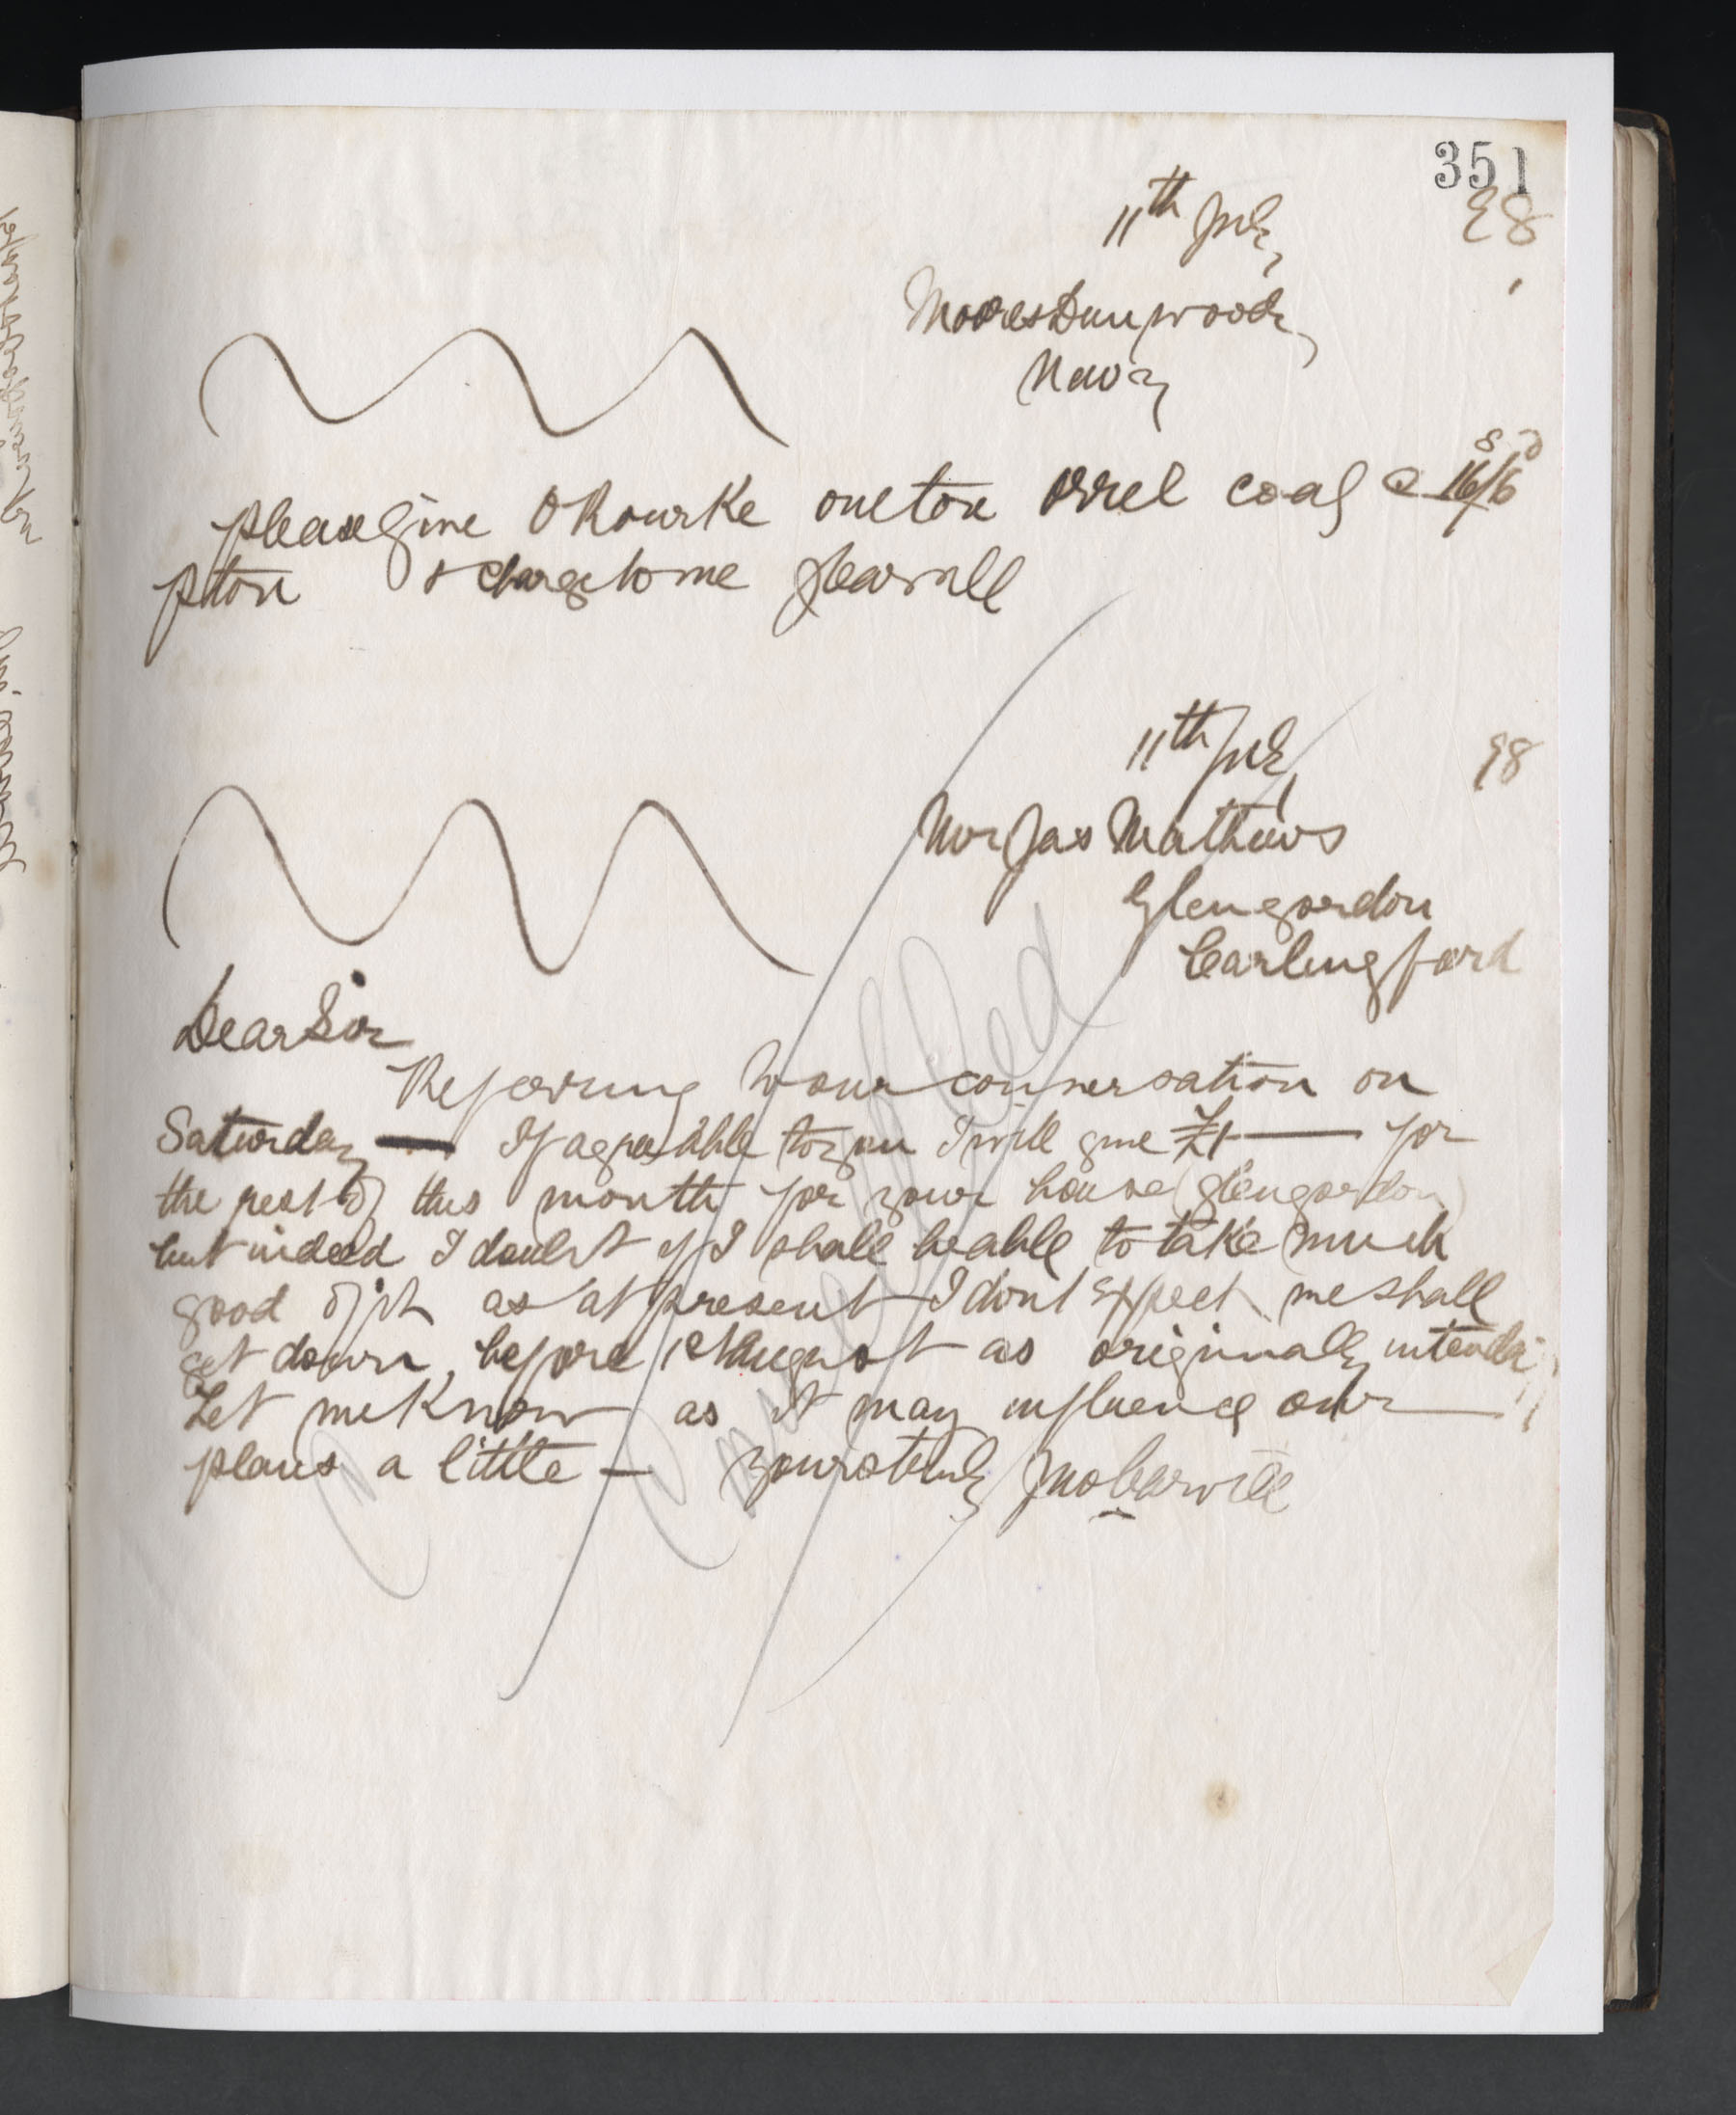 351
11th July 98
Moores Dunwoody
Newry
please give O Rourke one ton Orrel coal @ 16s/6d
p ton & charge to me JCarvill
11th July 98
Mr Jas Mathews
Glengordon
Carlingford
Dear Sir
Referring to our conversation on
Saturday — If agreeable to you I will give £1 — for
the rest of this month for your house (Glengordon)
but indeed I doubt if I shall be able to take much
good of it as at present I dont expect we shall
get down before 1st August as originally
Let me know as it may influence our
plans a little — yours truly Jno Carvill
Cancelled